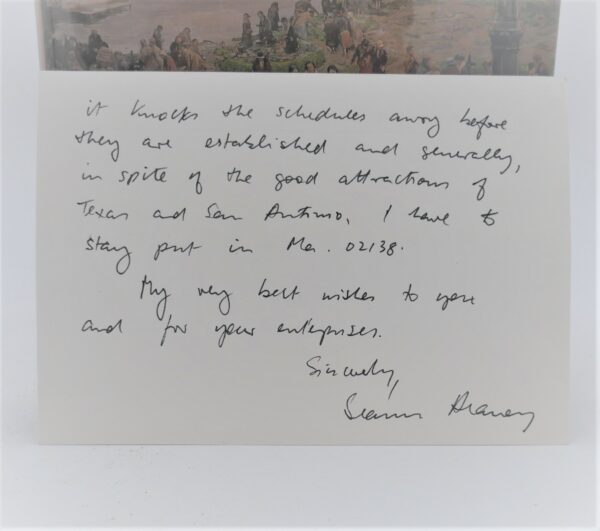 it knocks the schedules awry before
they are established and generally,
in spite of the good attractions of
Texas and San Antonio, I have to
stay put in Ma. 02138.
My very best wishes to you
and for your enterprises.
Sincerely,
Seamus Heaney